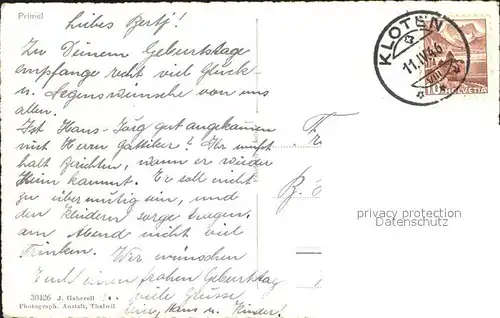 Primel
Liebes Berty!
Zu Deinem Geburtstage
empfange recht viel Glück-
u. Segenswünsche von uns
allen.
Ist Hans-Jörg gut angekommen
mit Herrn Gattiker? Ihr müsst
halt berichten, wann er wieder
Heim kommt. Er soll nicht
zu übermütig sein, und
den Kleidern sorge tragen,
am Abend nicht viel
Trinken. Wir wünschen
Euch einen frohen Geburtstag
viele Grüsse
Hans u. Kinder!
30426 J. Gaberell
Photograph. Anstalt, Thalwil
KLOTEN
11.IV.46
VIII
10 HELVETIA
privacy protection
Datenschutz